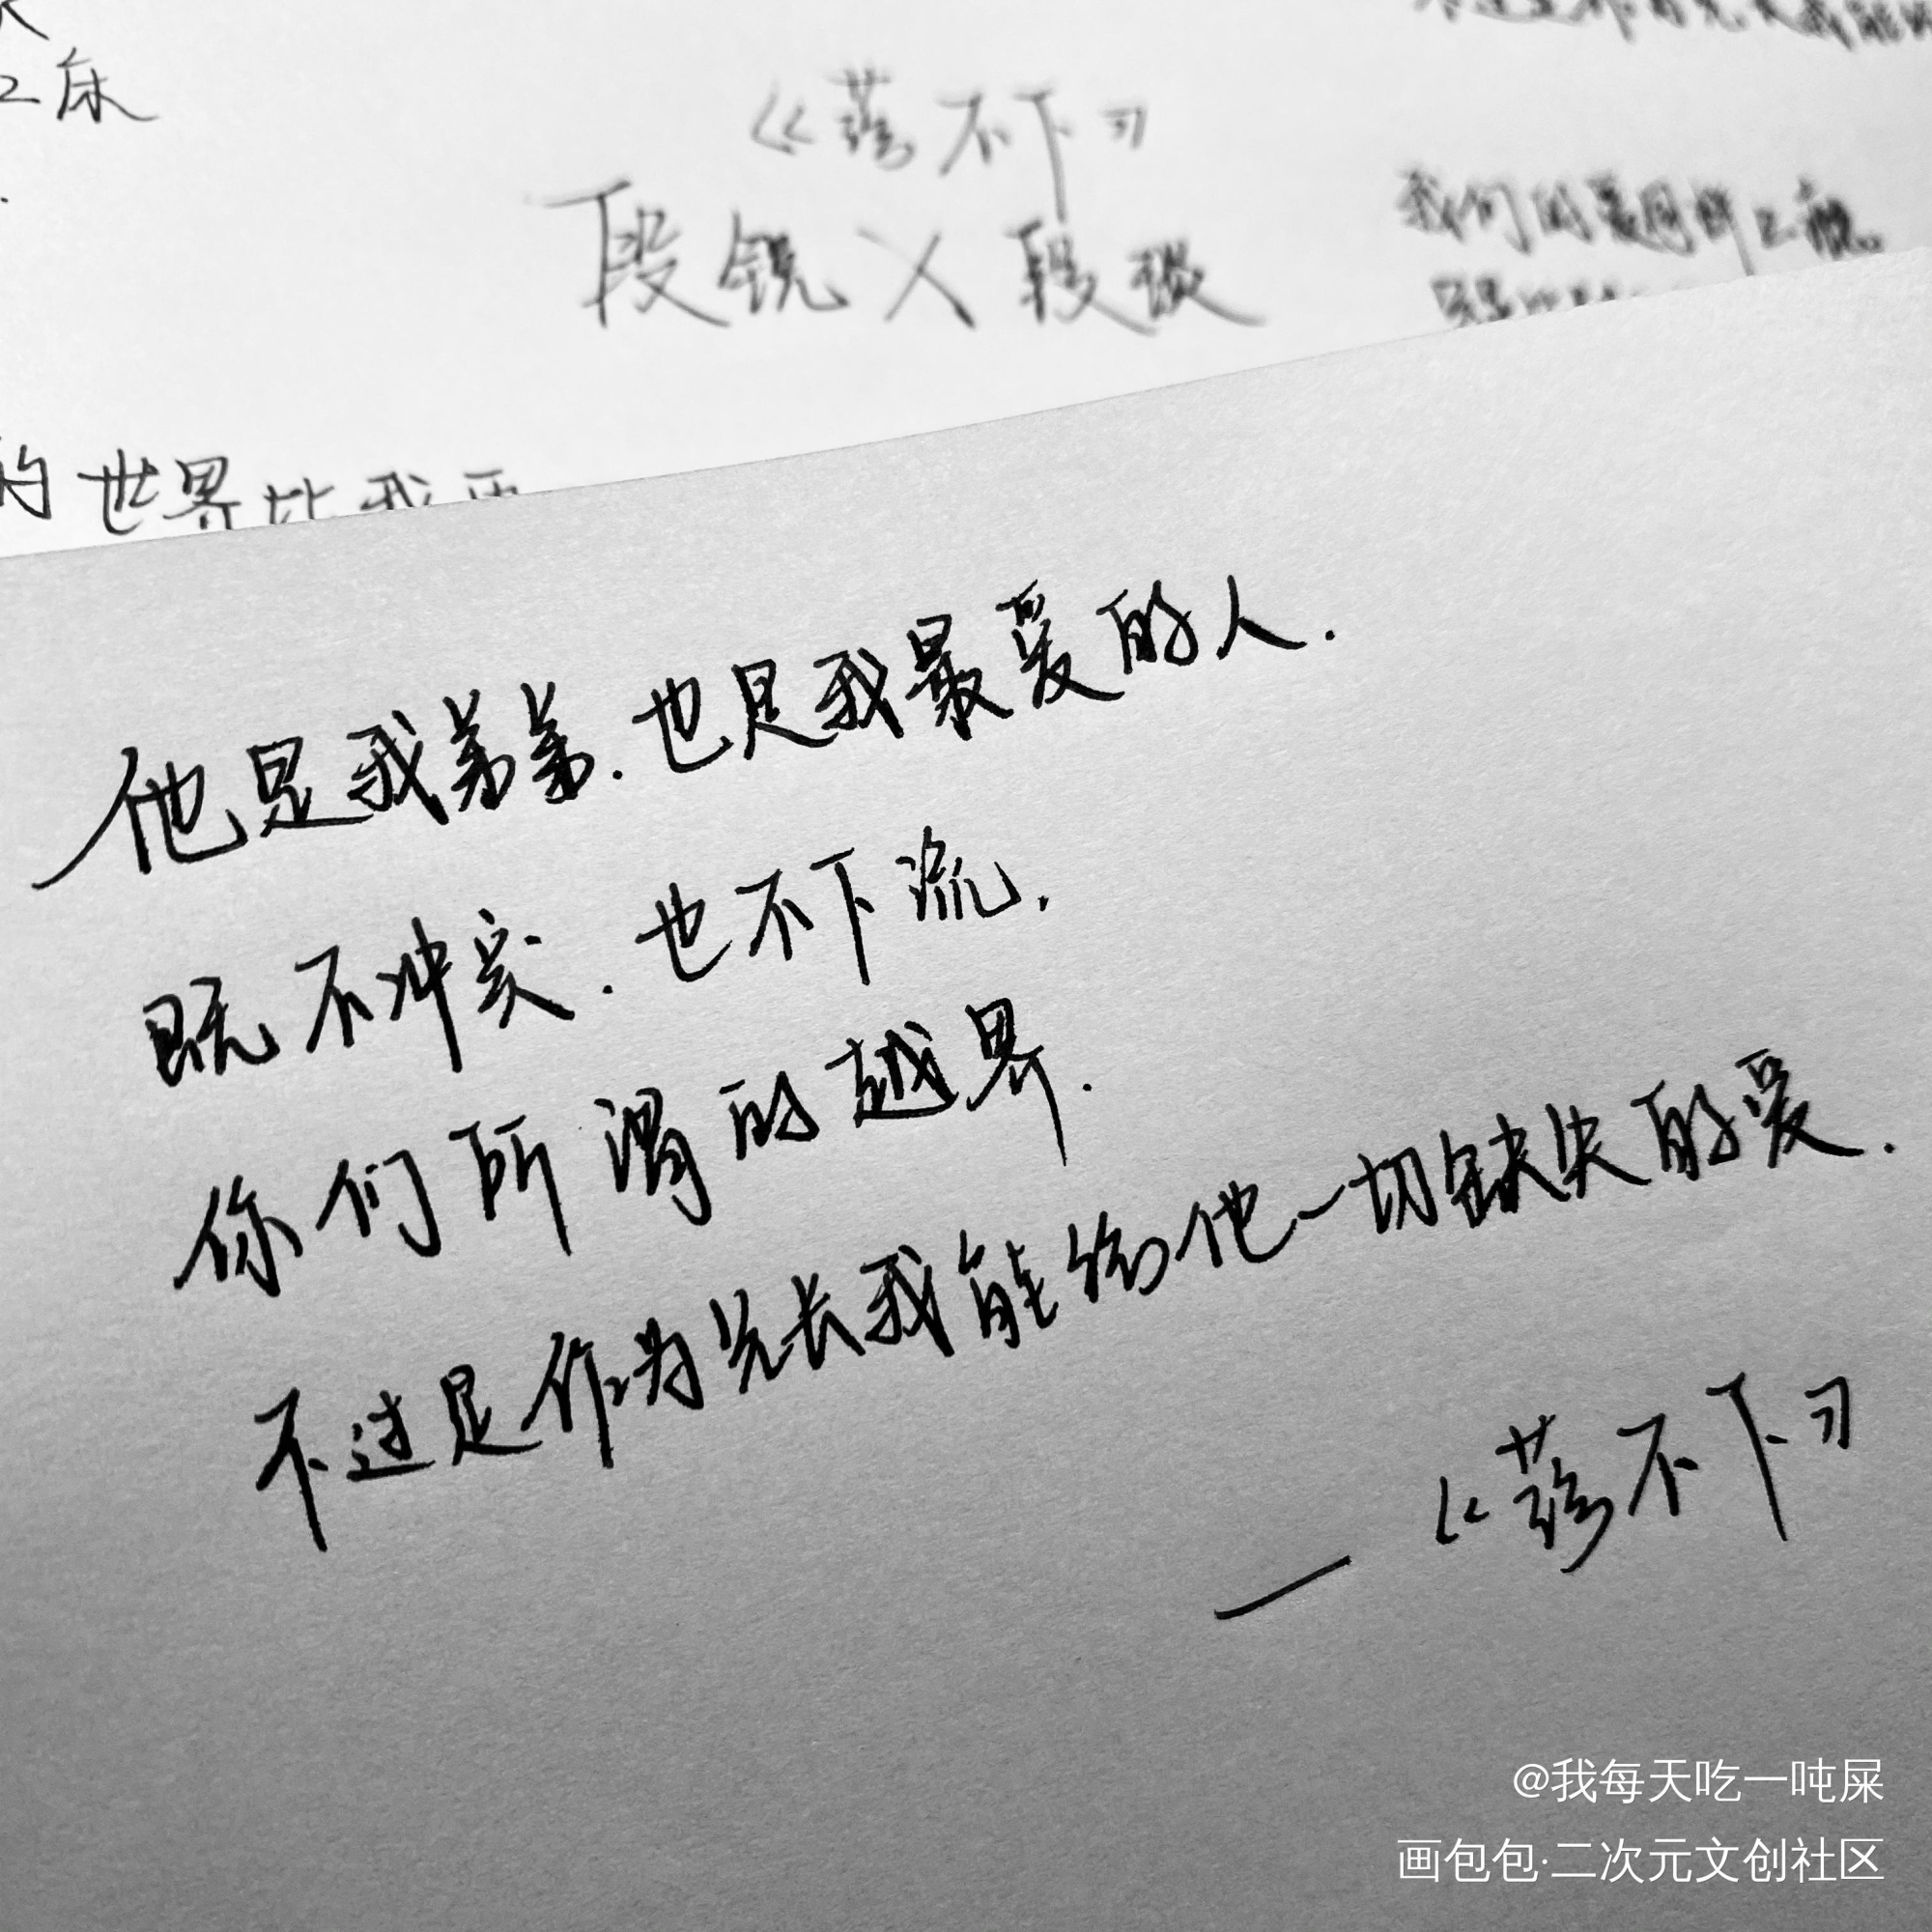 《荡不下》
段锐×段琰
的世界比我
他是我弟弟.也是我最爱的人.
既不冲突.也不下流.
你们所谓的越界.
不过是作为兄长我能给他一切缺失的爱.
—《荡不下》
@我每天吃一吨屎
画包包·二次元文创社区